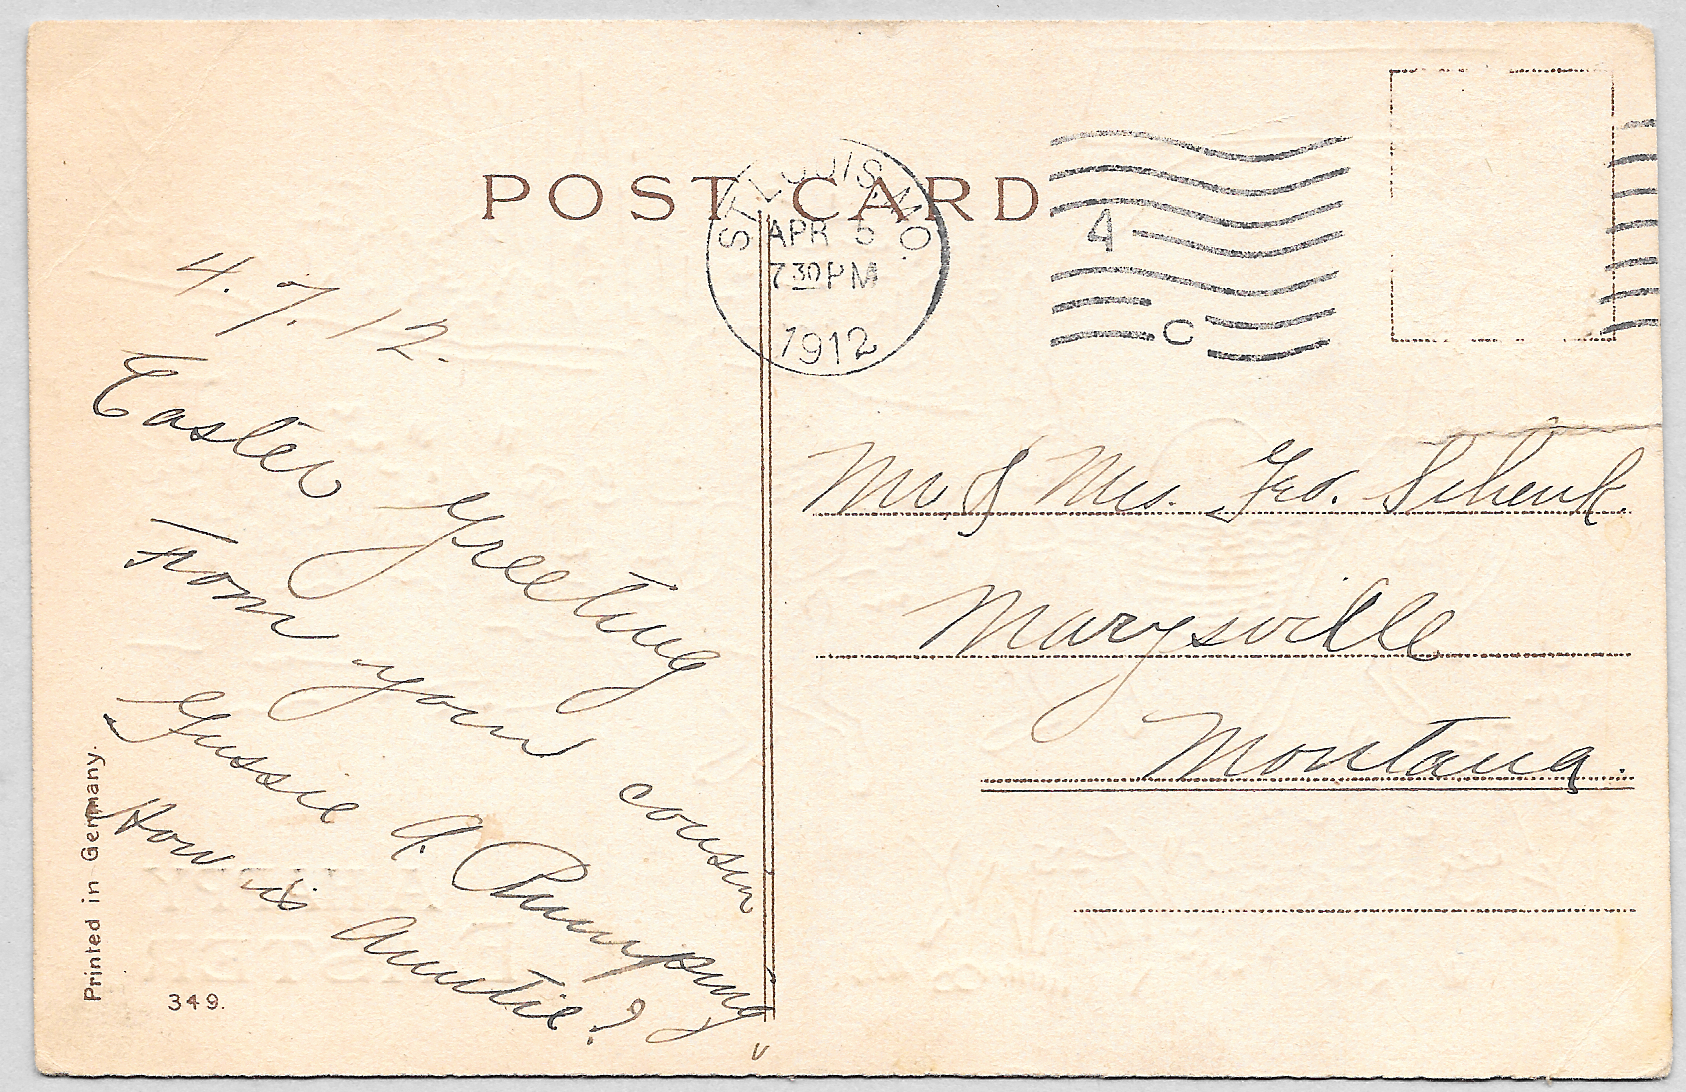 POST CARD
ST. LOUIS, MO.
APR 5
7 30 PM
1912
4
C
4. 7. 12.
Easter Greeting
From your cousin
Gussie A.
How is Auntie?
Mr & Mrs. Geo. Schenk
Marysville
Montana.
Printed in Germany.
349.
A HAPPY
EASTER